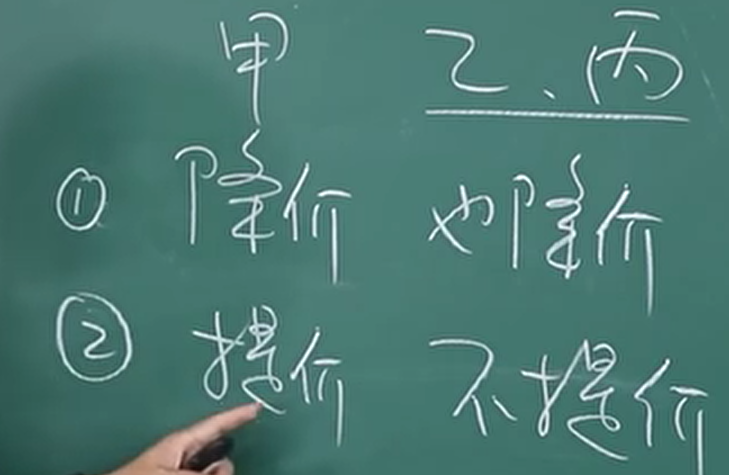 甲 乙、丙
① 降价 也降价
② 提价 不提价